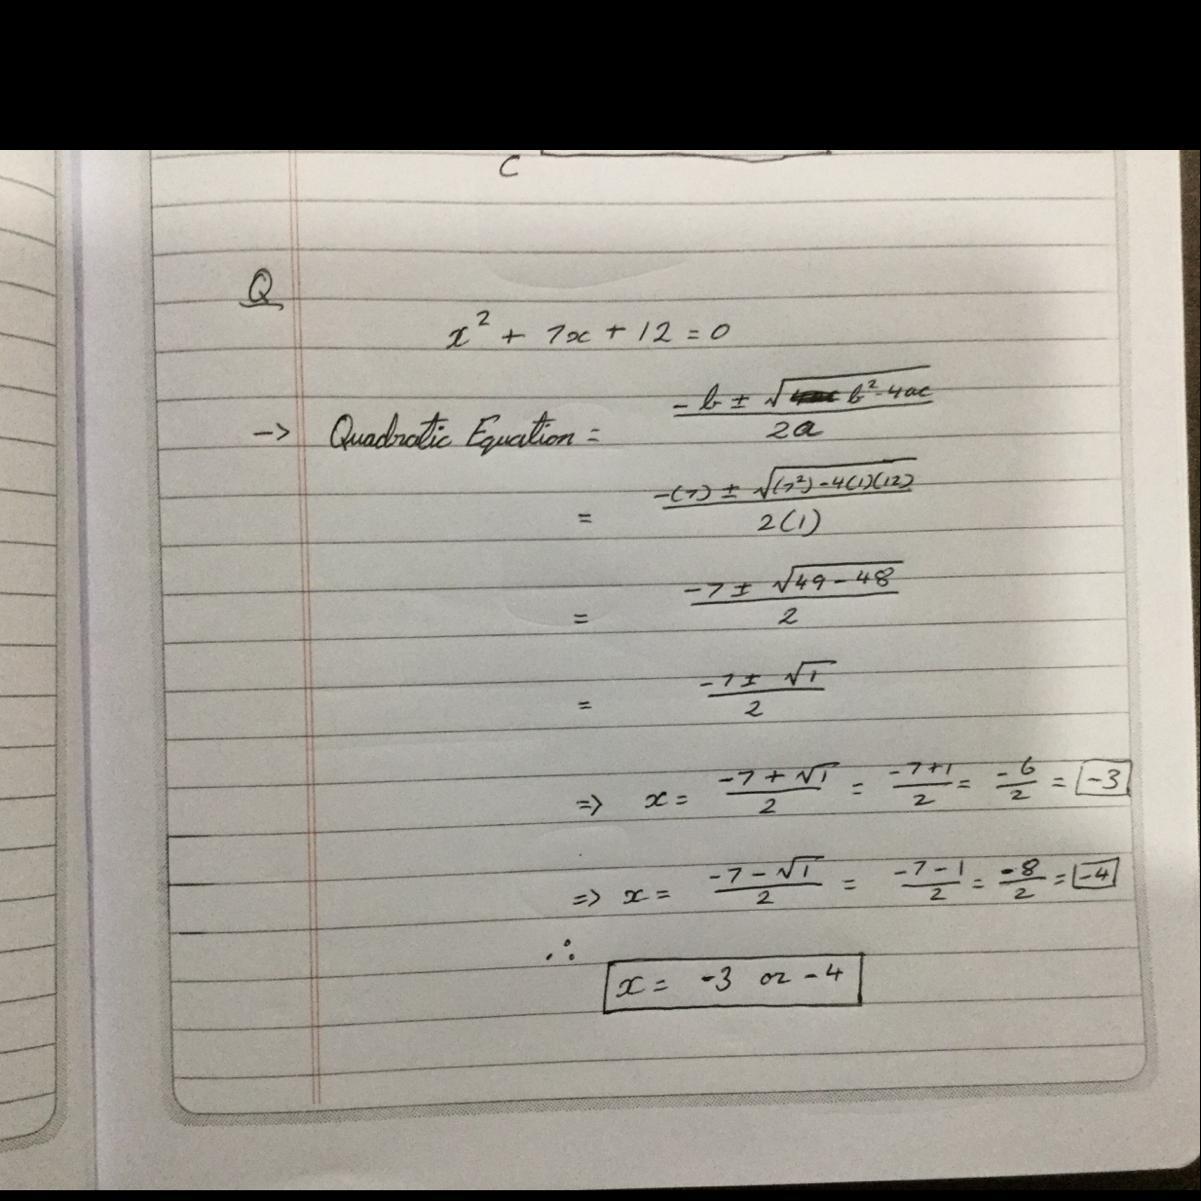 C
Q
x² + 7x + 12 = 0
-> Quadratic Equation = (-b ± √(b² - 4ac)) / 2a
= (-(7) ± √((7²) - 4(1)(12))) / 2(1)
= (-7 ± √(49 - 48)) / 2
= (-7 ± √1) / 2
=> x = (-7 + √1) / 2 = (-7+1) / 2 = -6 / 2 = -3
=> x = (-7 - √1) / 2 = (-7 - 1) / 2 = -8 / 2 = -4
∴
x = -3 or -4